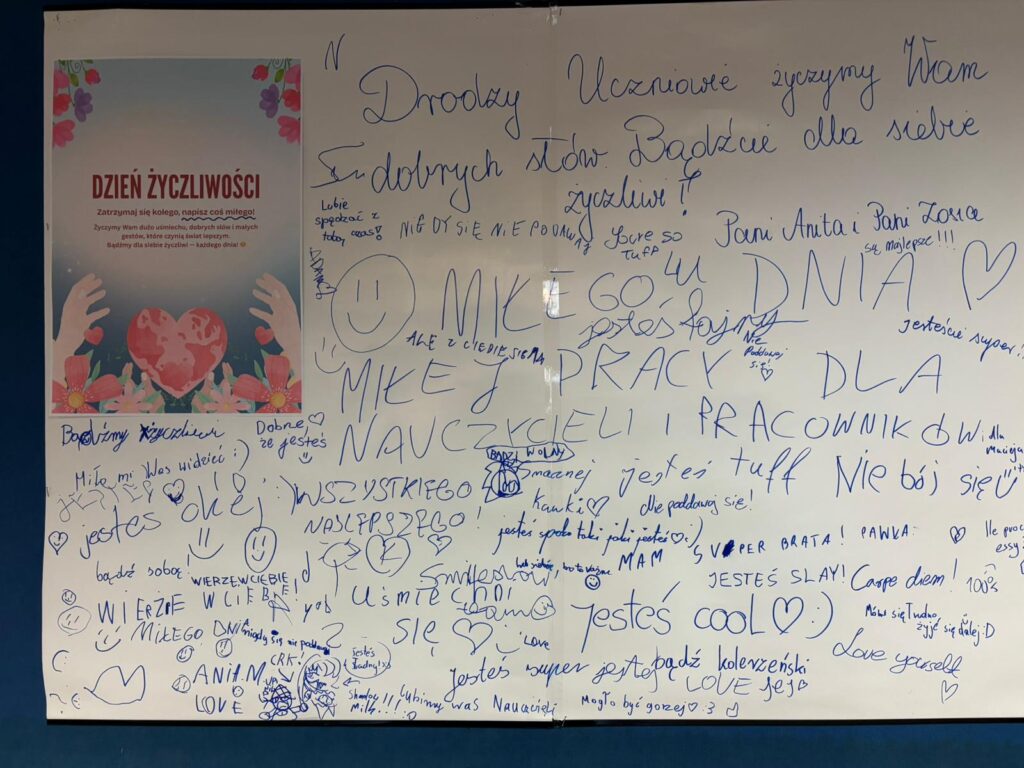 DZIEŃ ŻYCZLIWOŚCI
Zatrzymaj się kolego, napisz coś miłego!
Życzymy Wam dużo uśmiechu, dobrych słów i małych
gestów, które czynią świat lepszym.
Bądźmy dla siebie życzliwi – każdego dnia! 😊
N
Drodzy Uczniowie życzymy Wam
dobrych słów Bądźcie dla siebie
życzliwi!
Lubię
spędzać z
tobą czas!
NIGDY SIĘ NIE PODDAWAJ
You're so
tuff
Pani Anita i Pani Zosia
są najlepsze!!!
MIŁEGO DNIA ♡
jesteś fajny
Jesteście super!!
ALE Z CIEBIE SIGMA
Nie
Poddawaj
się ♡
MIŁEJ PRACY DLA
NAUCZYCIELI I PRACOWNIKÓW
dla
Bądźmy życzliwi
Dobrze ♡
że jesteś
:)
Miło mi Was widzieć :)
BĄDŹ WOLNY
smacznej
kawki ♡
jesteś tuff
Nie bój się
jesteś okej :)
WSZYSTKIEGO
NAJLEPSZEGO!
Nie poddawaj się!
jesteś spoko taki jaki jesteś ♡ :)
MAM
SUPER BRATA! PAWKA
bądź sobą!
WIERZĘ W CIEBIE!
JESTEŚ SLAY!
Carpe diem!
100%
WIERZE W CIEBIE!
UŚMIECHNIJ
SIĘ ♡
Jesteś cool ♡ :)
Mówi się trudno
żyje się dalej :D
MIŁEGO DNIA
LOVE
Love yourself
♡
jesteś
ładny!
Jesteś super
bądź koleżeński
LOVE
LOVE
Lubimy was Nauczyciele
Mogło być gorzej ♡ :3